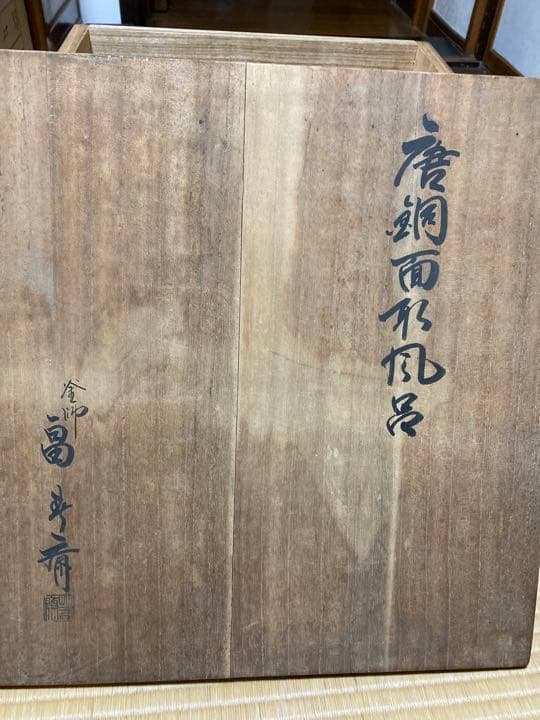 唐銅面取風呂
釜師
畠春斎